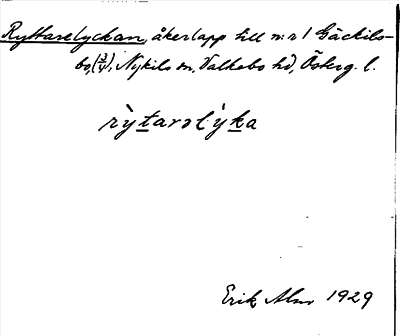 Ryttarelyckan, åkerlapp till n:r 1 Gäckils-
bo, (3/4), Nykils sn, Valkebo hd, Österg. l.
rỳtarolỳka
Erik Alm 1929